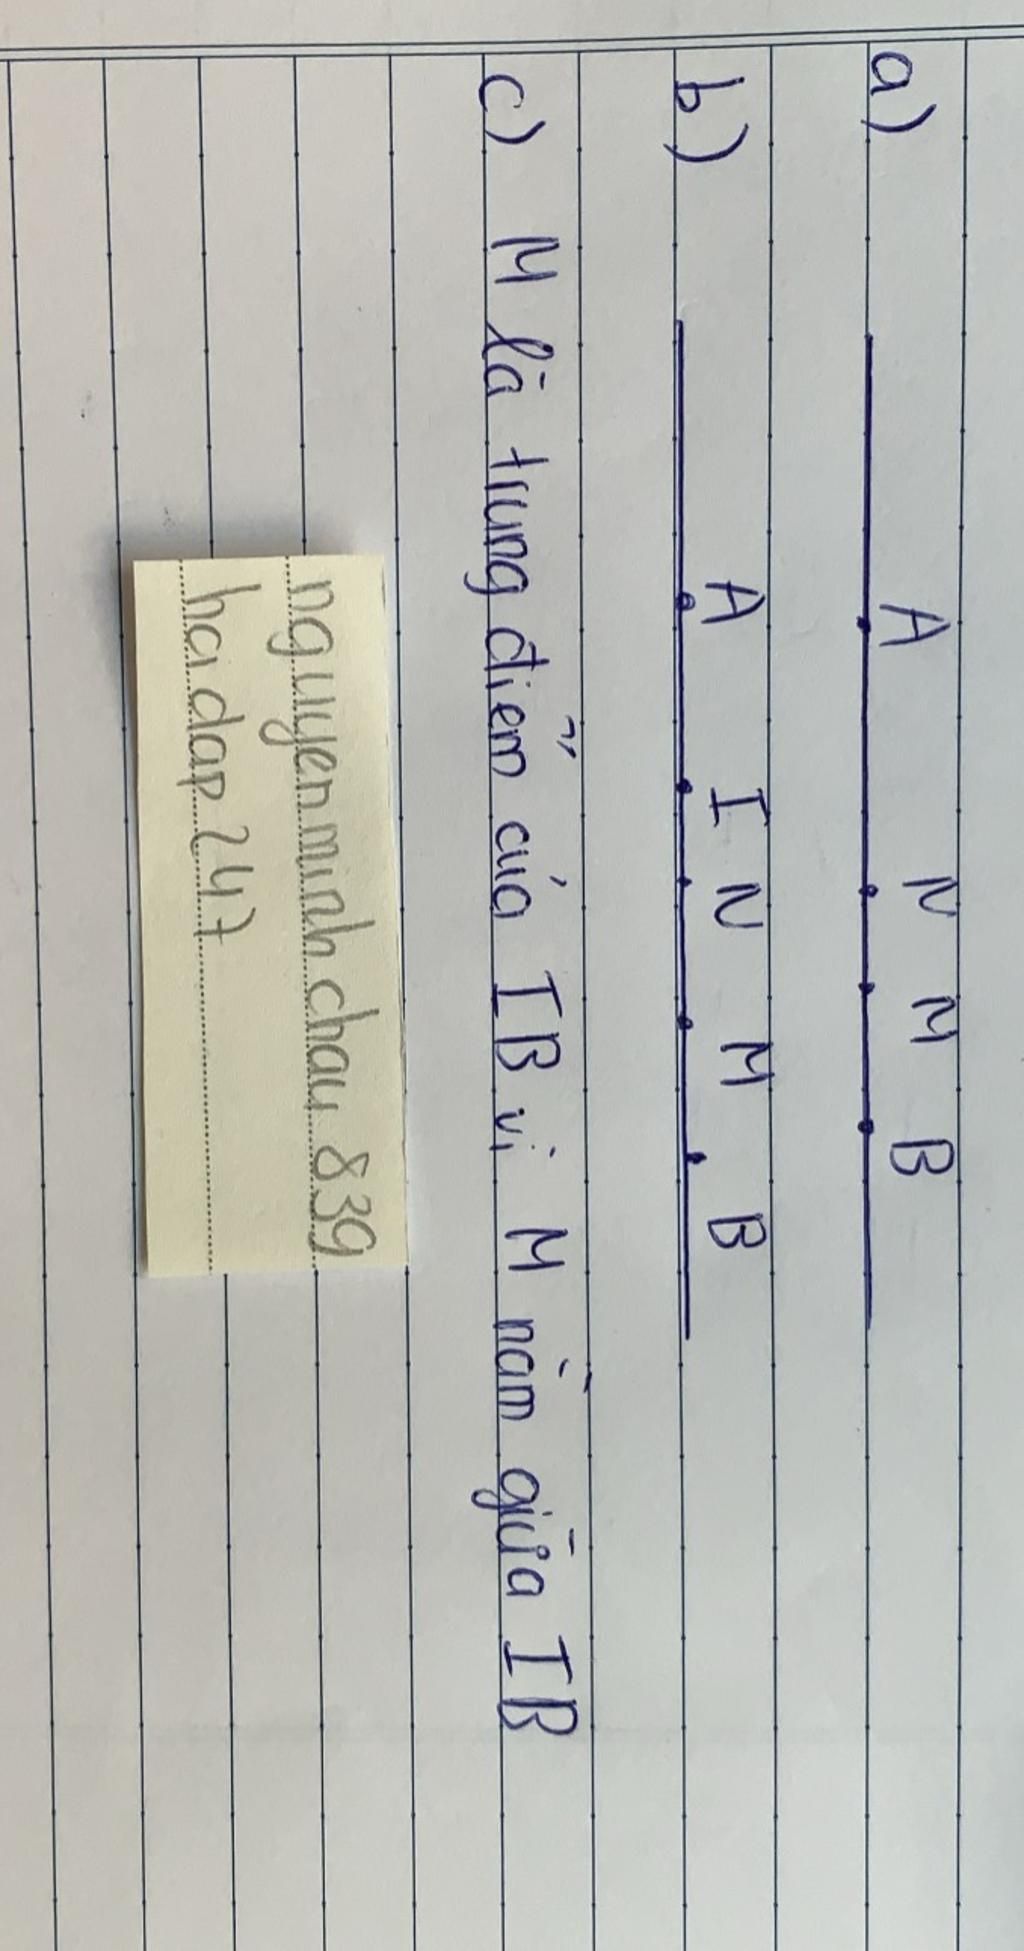 a)
A N M B
b)
A I N M B
c) M là trung điểm của IB vì M nằm giữa IB
nguyenminhchau839
hoidap247